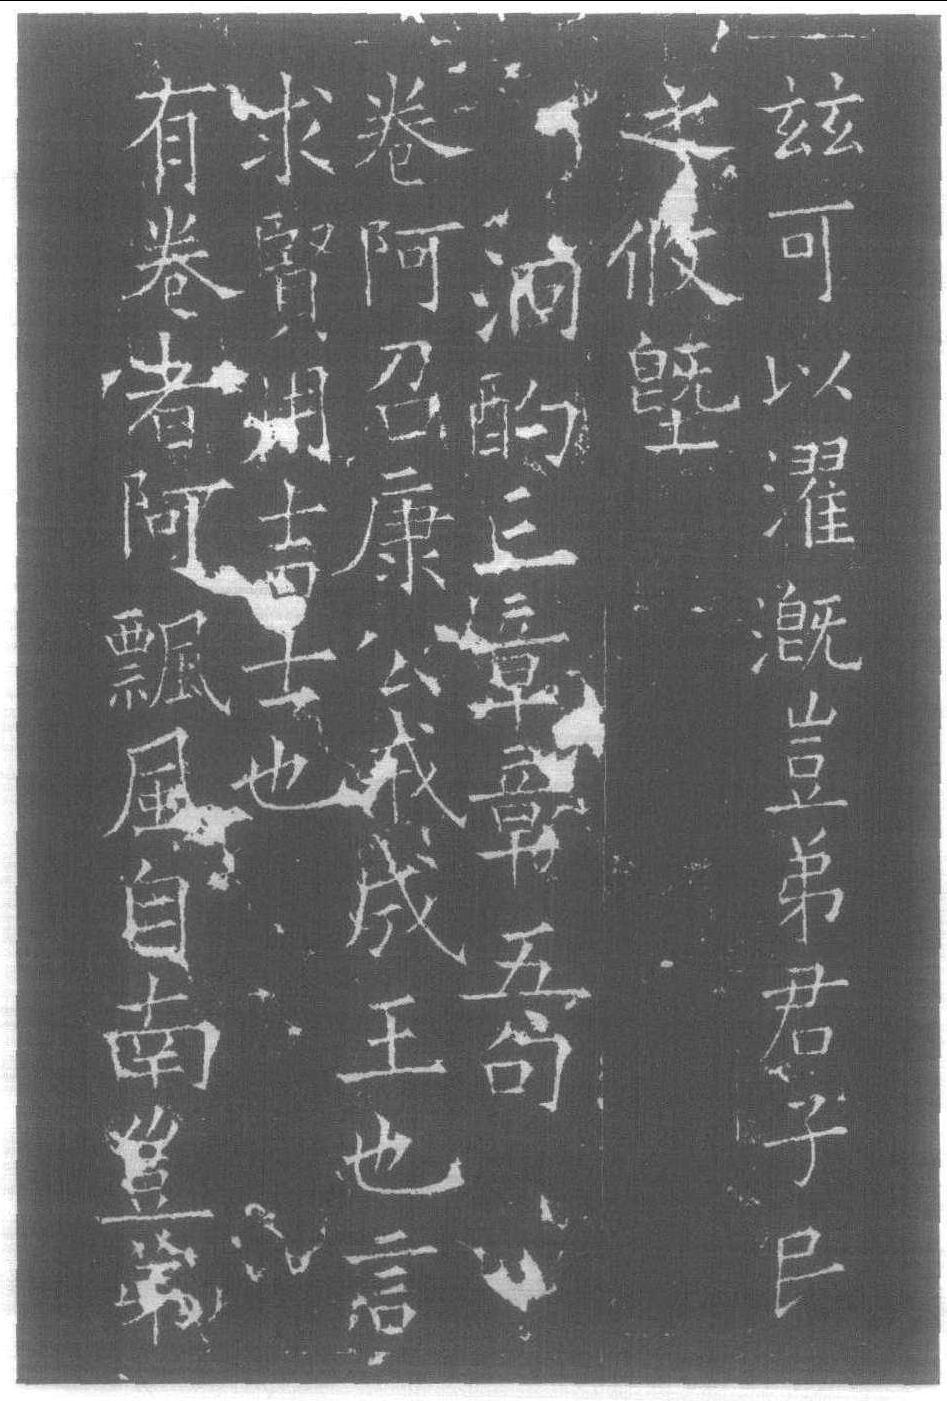 玆可以濯漑豈弟君子民
之攸塈
泂酌三章章五句
卷阿召康公戒成王也言
求賢用吉士也
有卷者阿飄風自南豈弟